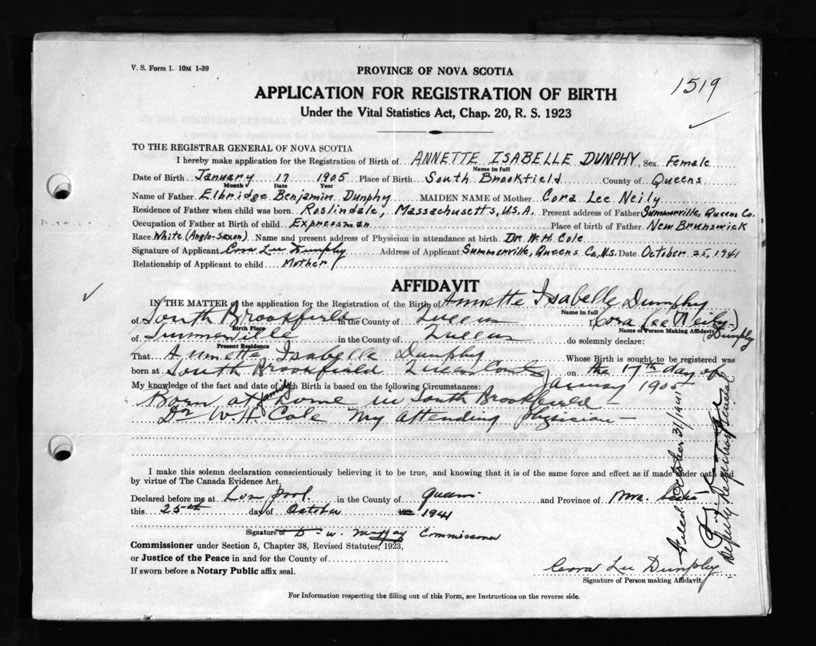 V. S. Form 1. 10M 1-39
PROVINCE OF NOVA SCOTIA
1519
APPLICATION FOR REGISTRATION OF BIRTH
Under the Vital Statistics Act, Chap. 20, R. S. 1923
TO THE REGISTRAR GENERAL OF NOVA SCOTIA
I hereby make application for the Registration of Birth of ANNETTE ISABELLE DUNPHY, Sex Female
Name in full
Date of Birth January 17 1905 Place of Birth South Brookfield County of Queens
Month Date Year
Name of Father Elbridge Benjamin Dunphy MAIDEN NAME of Mother Cora Lee Neily
Residence of Father when child was born Roslindale, Massachusetts, U.S.A. Present address of Father Summerville, Queens Co.
Occupation of Father at Birth of child Expressman Place of birth of Father New Brunswick
Race White (Anglo-Saxon) Name and present address of Physician in attendance at birth Dr. W. H. Cole
Signature of Applicant Cora Lee Dunphy Address of Applicant Summerville, Queens Co., N.S. Date October 25, 1941
Relationship of Applicant to child Mother
AFFIDAVIT
IN THE MATTER of the application for the Registration of the Birth of Annette Isabelle Dunphy
Name in full
of South Brookfield in the County of Queens (Cora Lee Neily) Dunphy
Birth Place Name of Person Making Affidavit
of Summerville in the County of Queens do solemnly declare:
Present Residence
That Annette Isabelle Dunphy Whose Birth is sought to be registered was
born at South Brookfield Queens County on the 17th day of January 1905
My knowledge of the fact and date of Birth is based on the following Circumstances:
Born at family home in South Brookfield
Dr W. H. Cole my attending physician
I make this solemn declaration conscientiously believing it to be true, and knowing that it is of the same force and effect as if made under oath and
by virtue of The Canada Evidence Act.
Declared before me at in the County of Queens and Province of Nova Scotia
this 25th day of October 1941
Signature Commissioner
Commissioner under Section 5, Chapter 38, Revised Statutes, 1923,
or Justice of the Peace in and for the County of
If sworn before a Notary Public affix seal.
Cora Lee Dunphy
Signature of Person making Affidavit
For Information respecting the filling out of this Form, see Instructions on the reverse side.
Filed October 31/1941
Deputy Registrar General